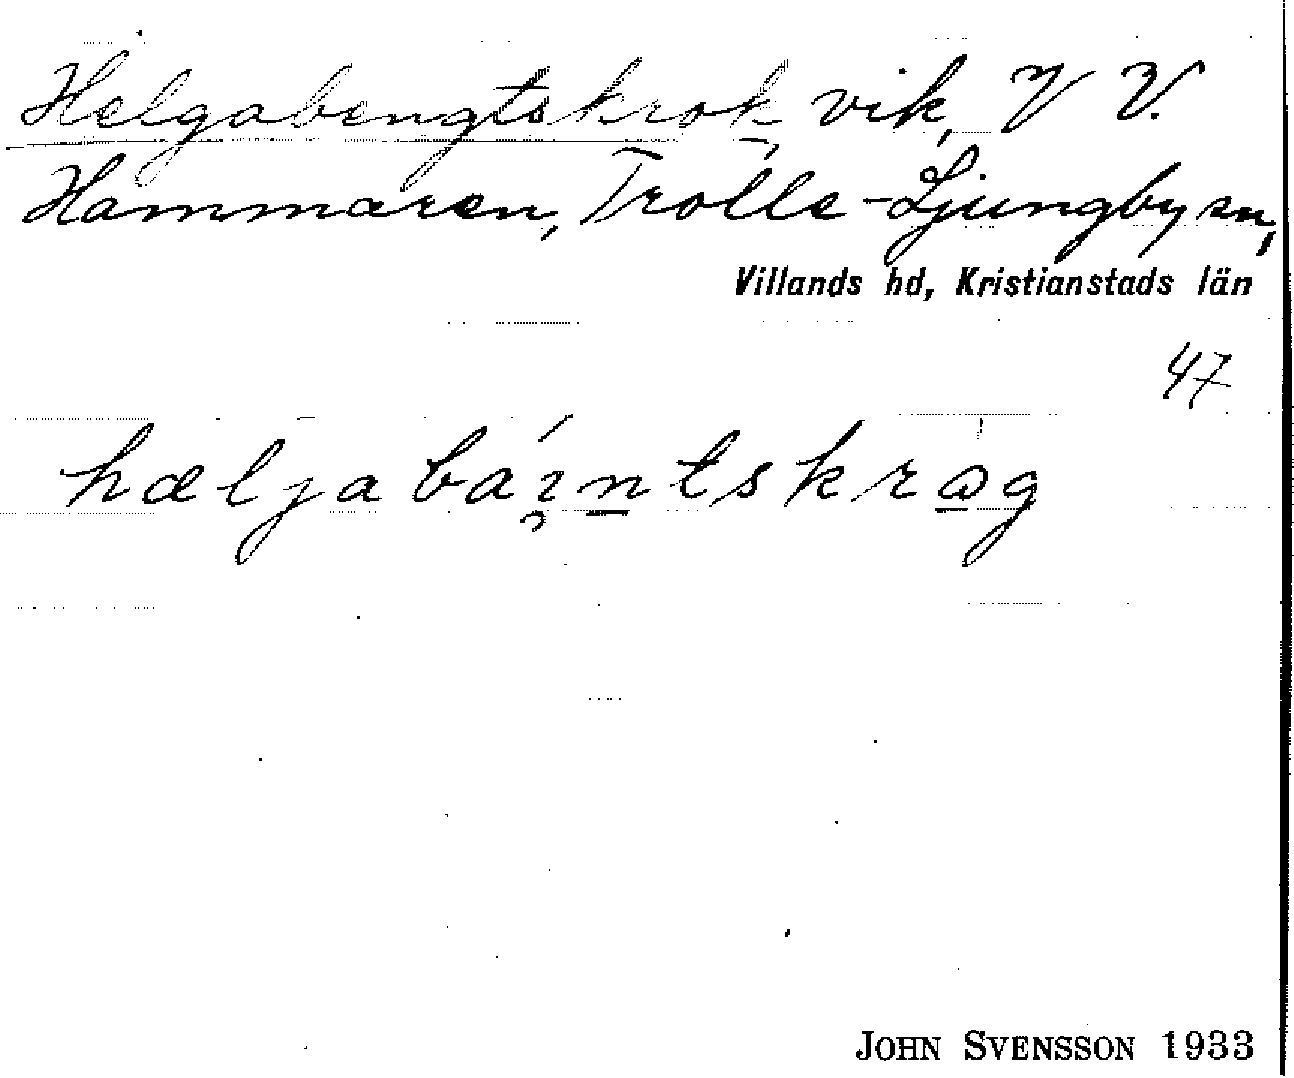 Helgabengtskrok, vik, V V.
Hammaren, Trolle-Ljungby sn,
Villands hd, Kristianstads län
47
hæljabáɪ̯n̲tskrɷ̲g
JOHN SVENSSON 1933